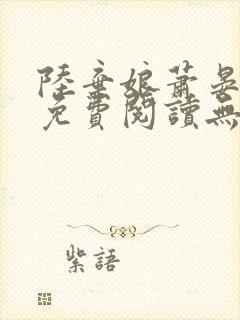 陸棄娘蕭晏
免費閱讀無
紫語